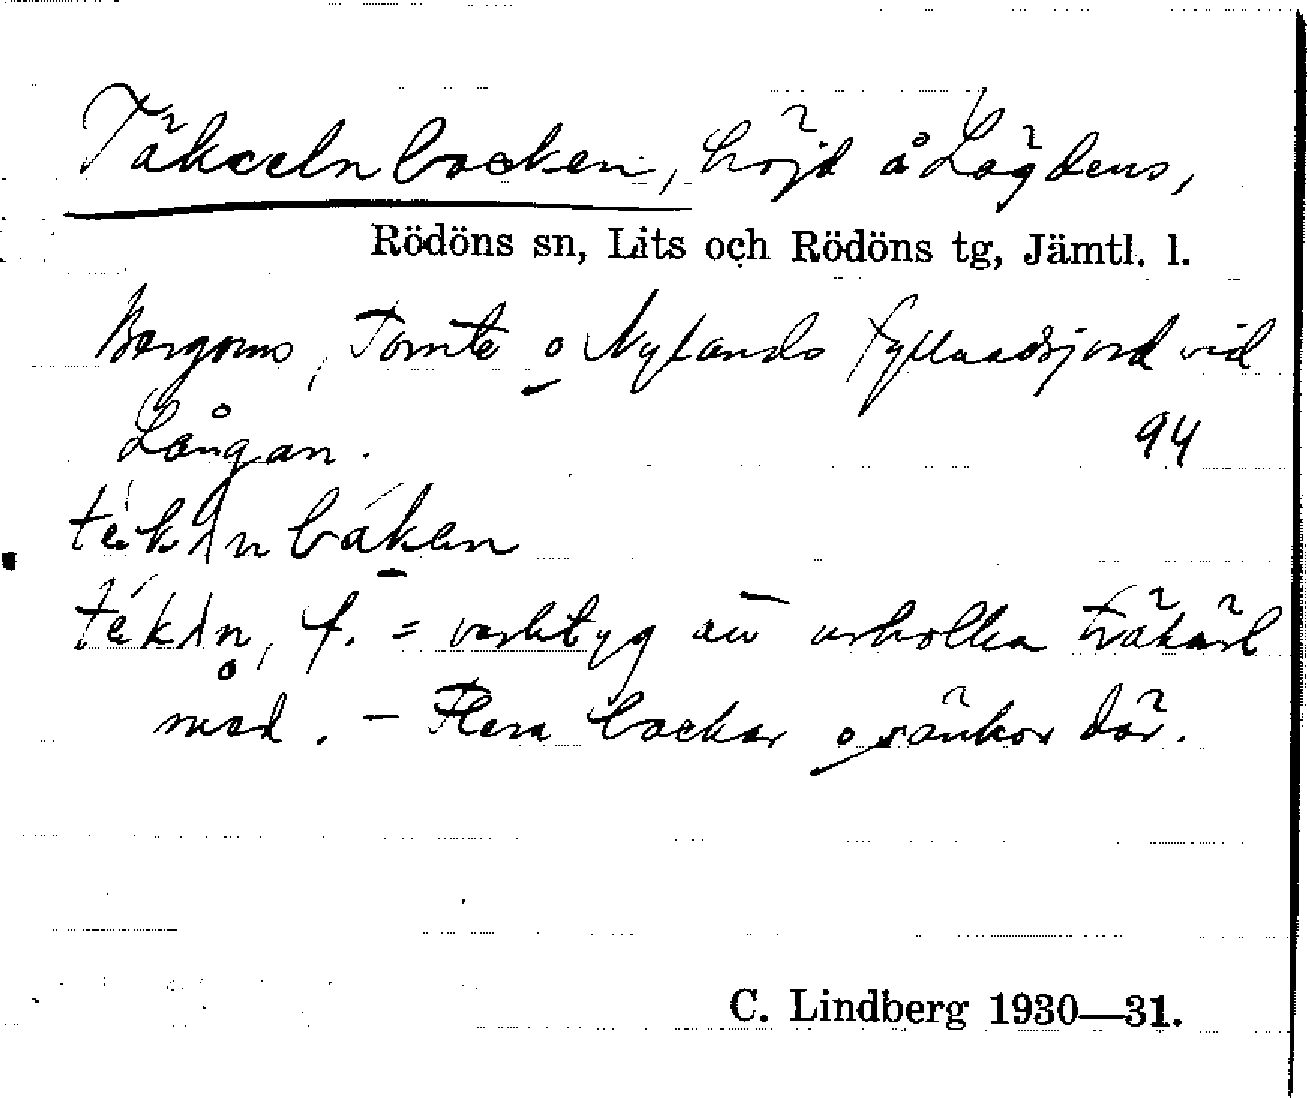 Täkcelnbacken, höjd å Lägdens,
Rödöns sn, Lits och Rödöns tg, Jämtl. l.
Bergoms, Tomte o Nylands fyllnadsjord vid
Långan.
94
báken
f. = verktyg att urholka träkärl
med. - Flera backar o sänkor där.
C. Lindberg 1930—31.